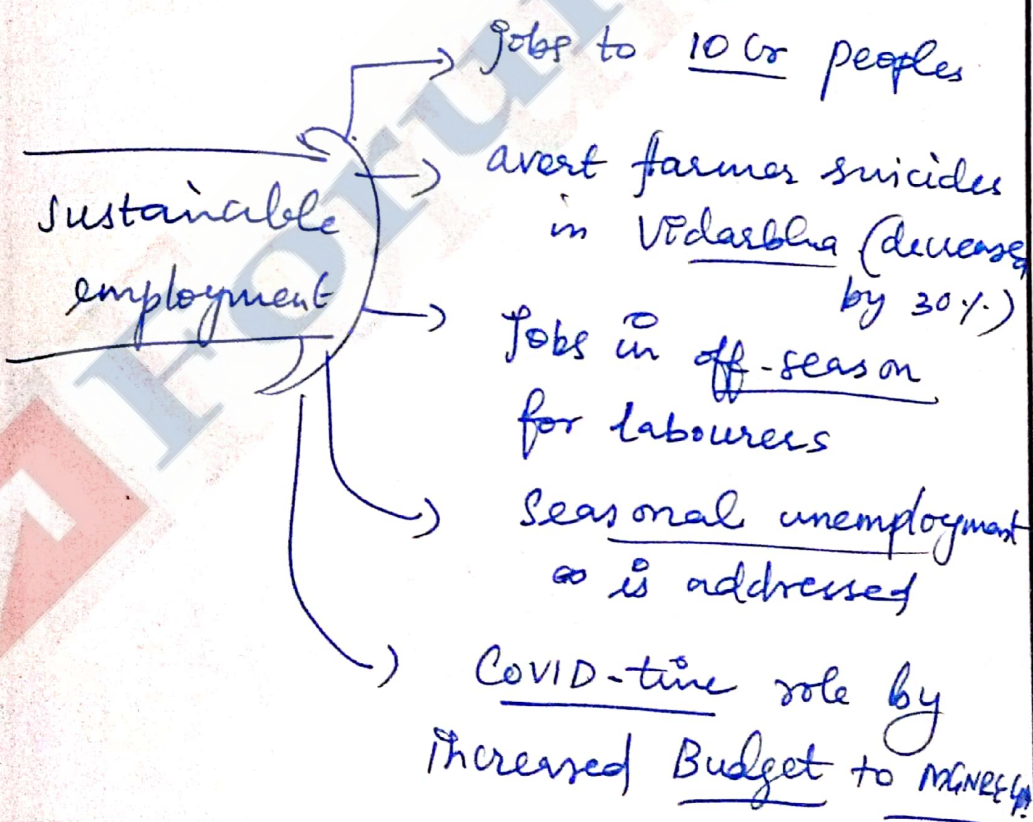 Forum
Jobs to 10 Cr peoples
Sustainable
employment
avert farmer suicides
in Vidarbha (decrease
by 30%)
Jobs in off-season
for labourers
Seasonal unemployment
is addressed
COVID-time role by
increased Budget to MGNREGA